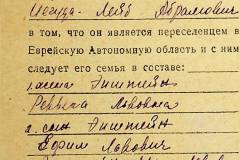 Лейб Абрамович
в том, что он является переселенцем в
Еврейскую Автономную область и с ним
следует его семья в составе:
Эпштейн
Ревекка Львовна
2. сын Эпштейн
Ефим Львович